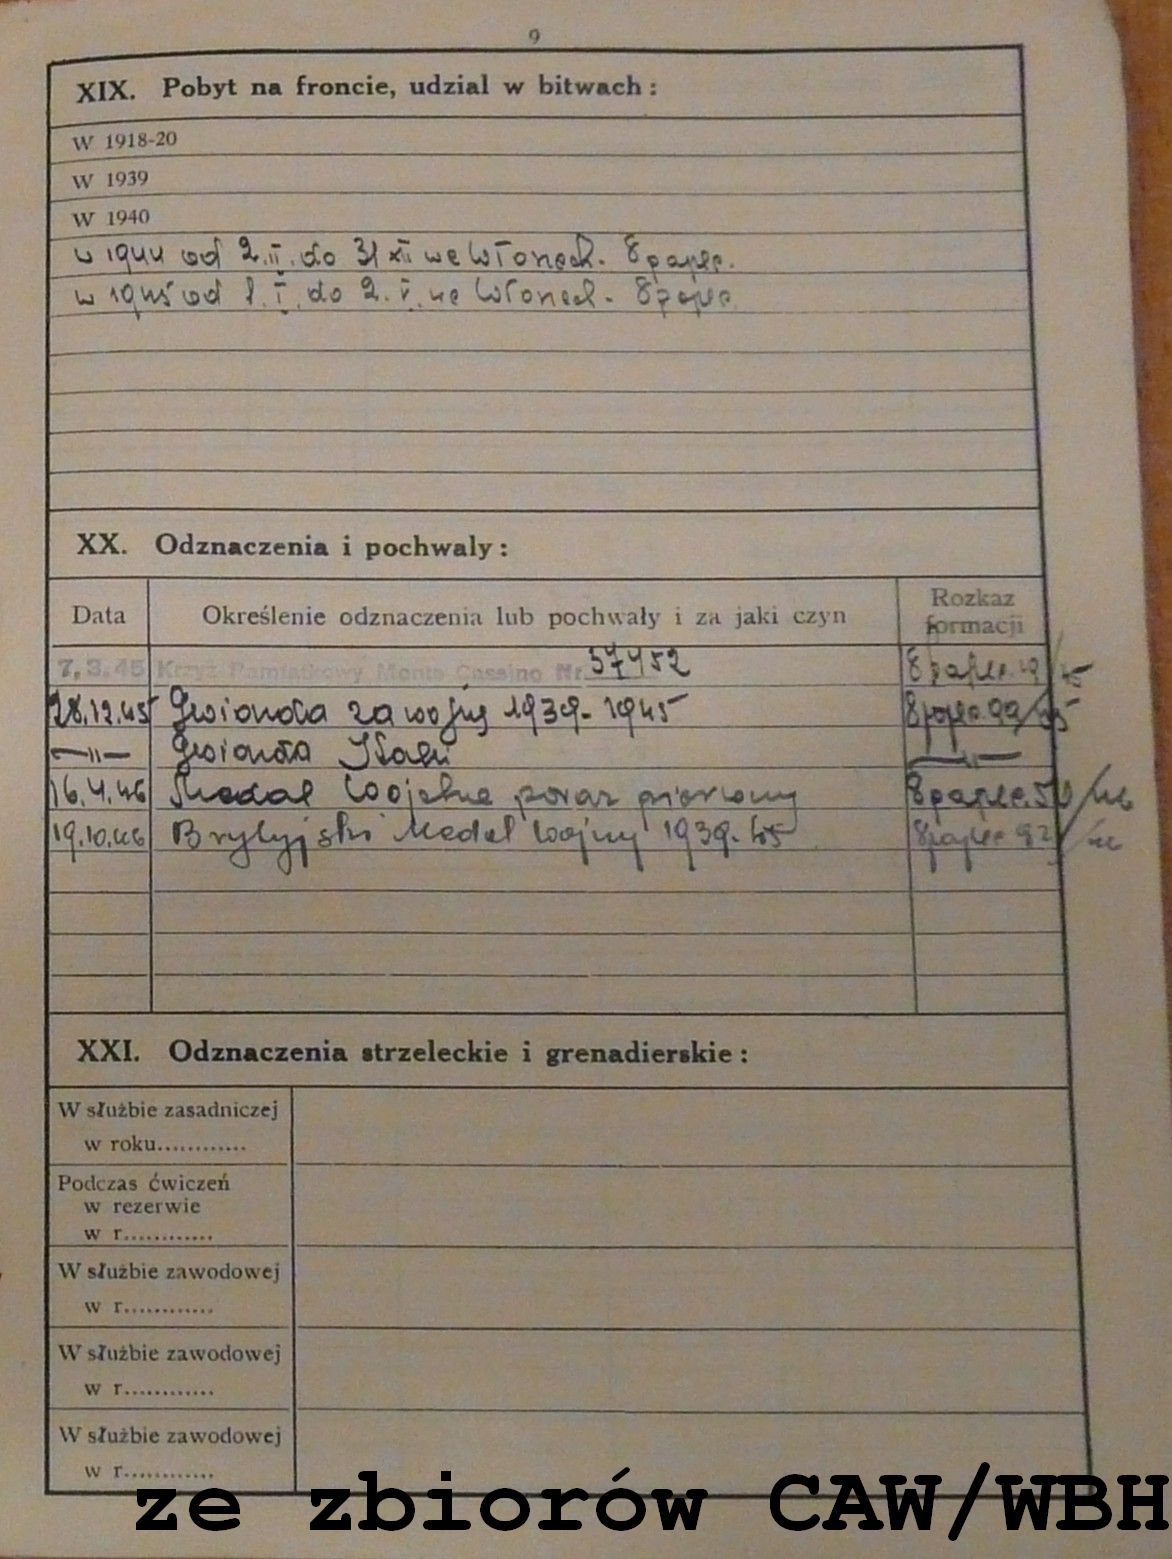 9
XIX. Pobyt na froncie, udzial w bitwach :
W 1918-20
W 1939
W 1940
w 1944 od 2.II. do 31 XII we Włoszech. 8 paplc.
w 1945 od 1.I. do 2.V. we Włoszech. 8 paplc.
XX. Odznaczenia i pochwaly :
Data Określenie odznaczenia lub pochwały i za jaki czyn Rozkaz formacji
7, 3. 45 Krzyż Pamiątkowy Monte Cassino Nr. 37452 8 paplc. 19/45
28.12.45 Gwiazda za wojnę 1939-1945 8 paplc 99/45
—"— Gwiazda Italii —"—
16.4.46 Medal Wojska poraz pierwszy 8 paplc. 50/46
19.10.46 Brytyjski Medal Wojny 1939-45 8 paplc 92/46
XXI. Odznaczenia strzeleckie i grenadierskie :
W służbie zasadniczej
w roku............
Podczas ćwiczeń
w rezerwie
w r............
W służbie zawodowej
w r............
W służbie zawodowej
w r............
W służbie zawodowej
w r............
ze zbiorów CAW/WBH